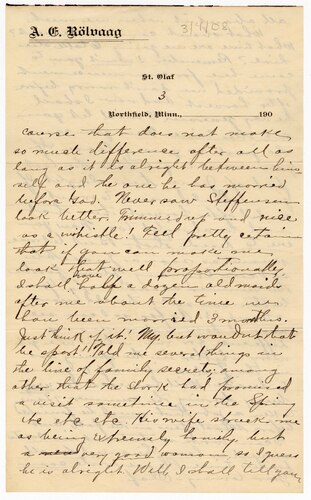 A. E. Rölvaag
3/4/08
St. Olaf
3
Northfield, Minn., 190
course that does not make
so much difference after all as
long as it is alright between him-
self and the one he has married
before God. Never saw Steffensen
look better. Trimmed up and nice
as a whistle! Feel pretty certain
that if you can make me
look that well proportionally,
I shall have half a dozen old maids
after me about the time we
have been married 3 months.
Just think of it! My, but wouldn't that
be sport! Told me several things in
the line of family secrets, among
other that the Stork had promised
a visit sometime in the Spring
etc etc etc. His wife struck me
as being extremely homely, but
a very good woman so I guess
he is alright. Well, I shall tell you,